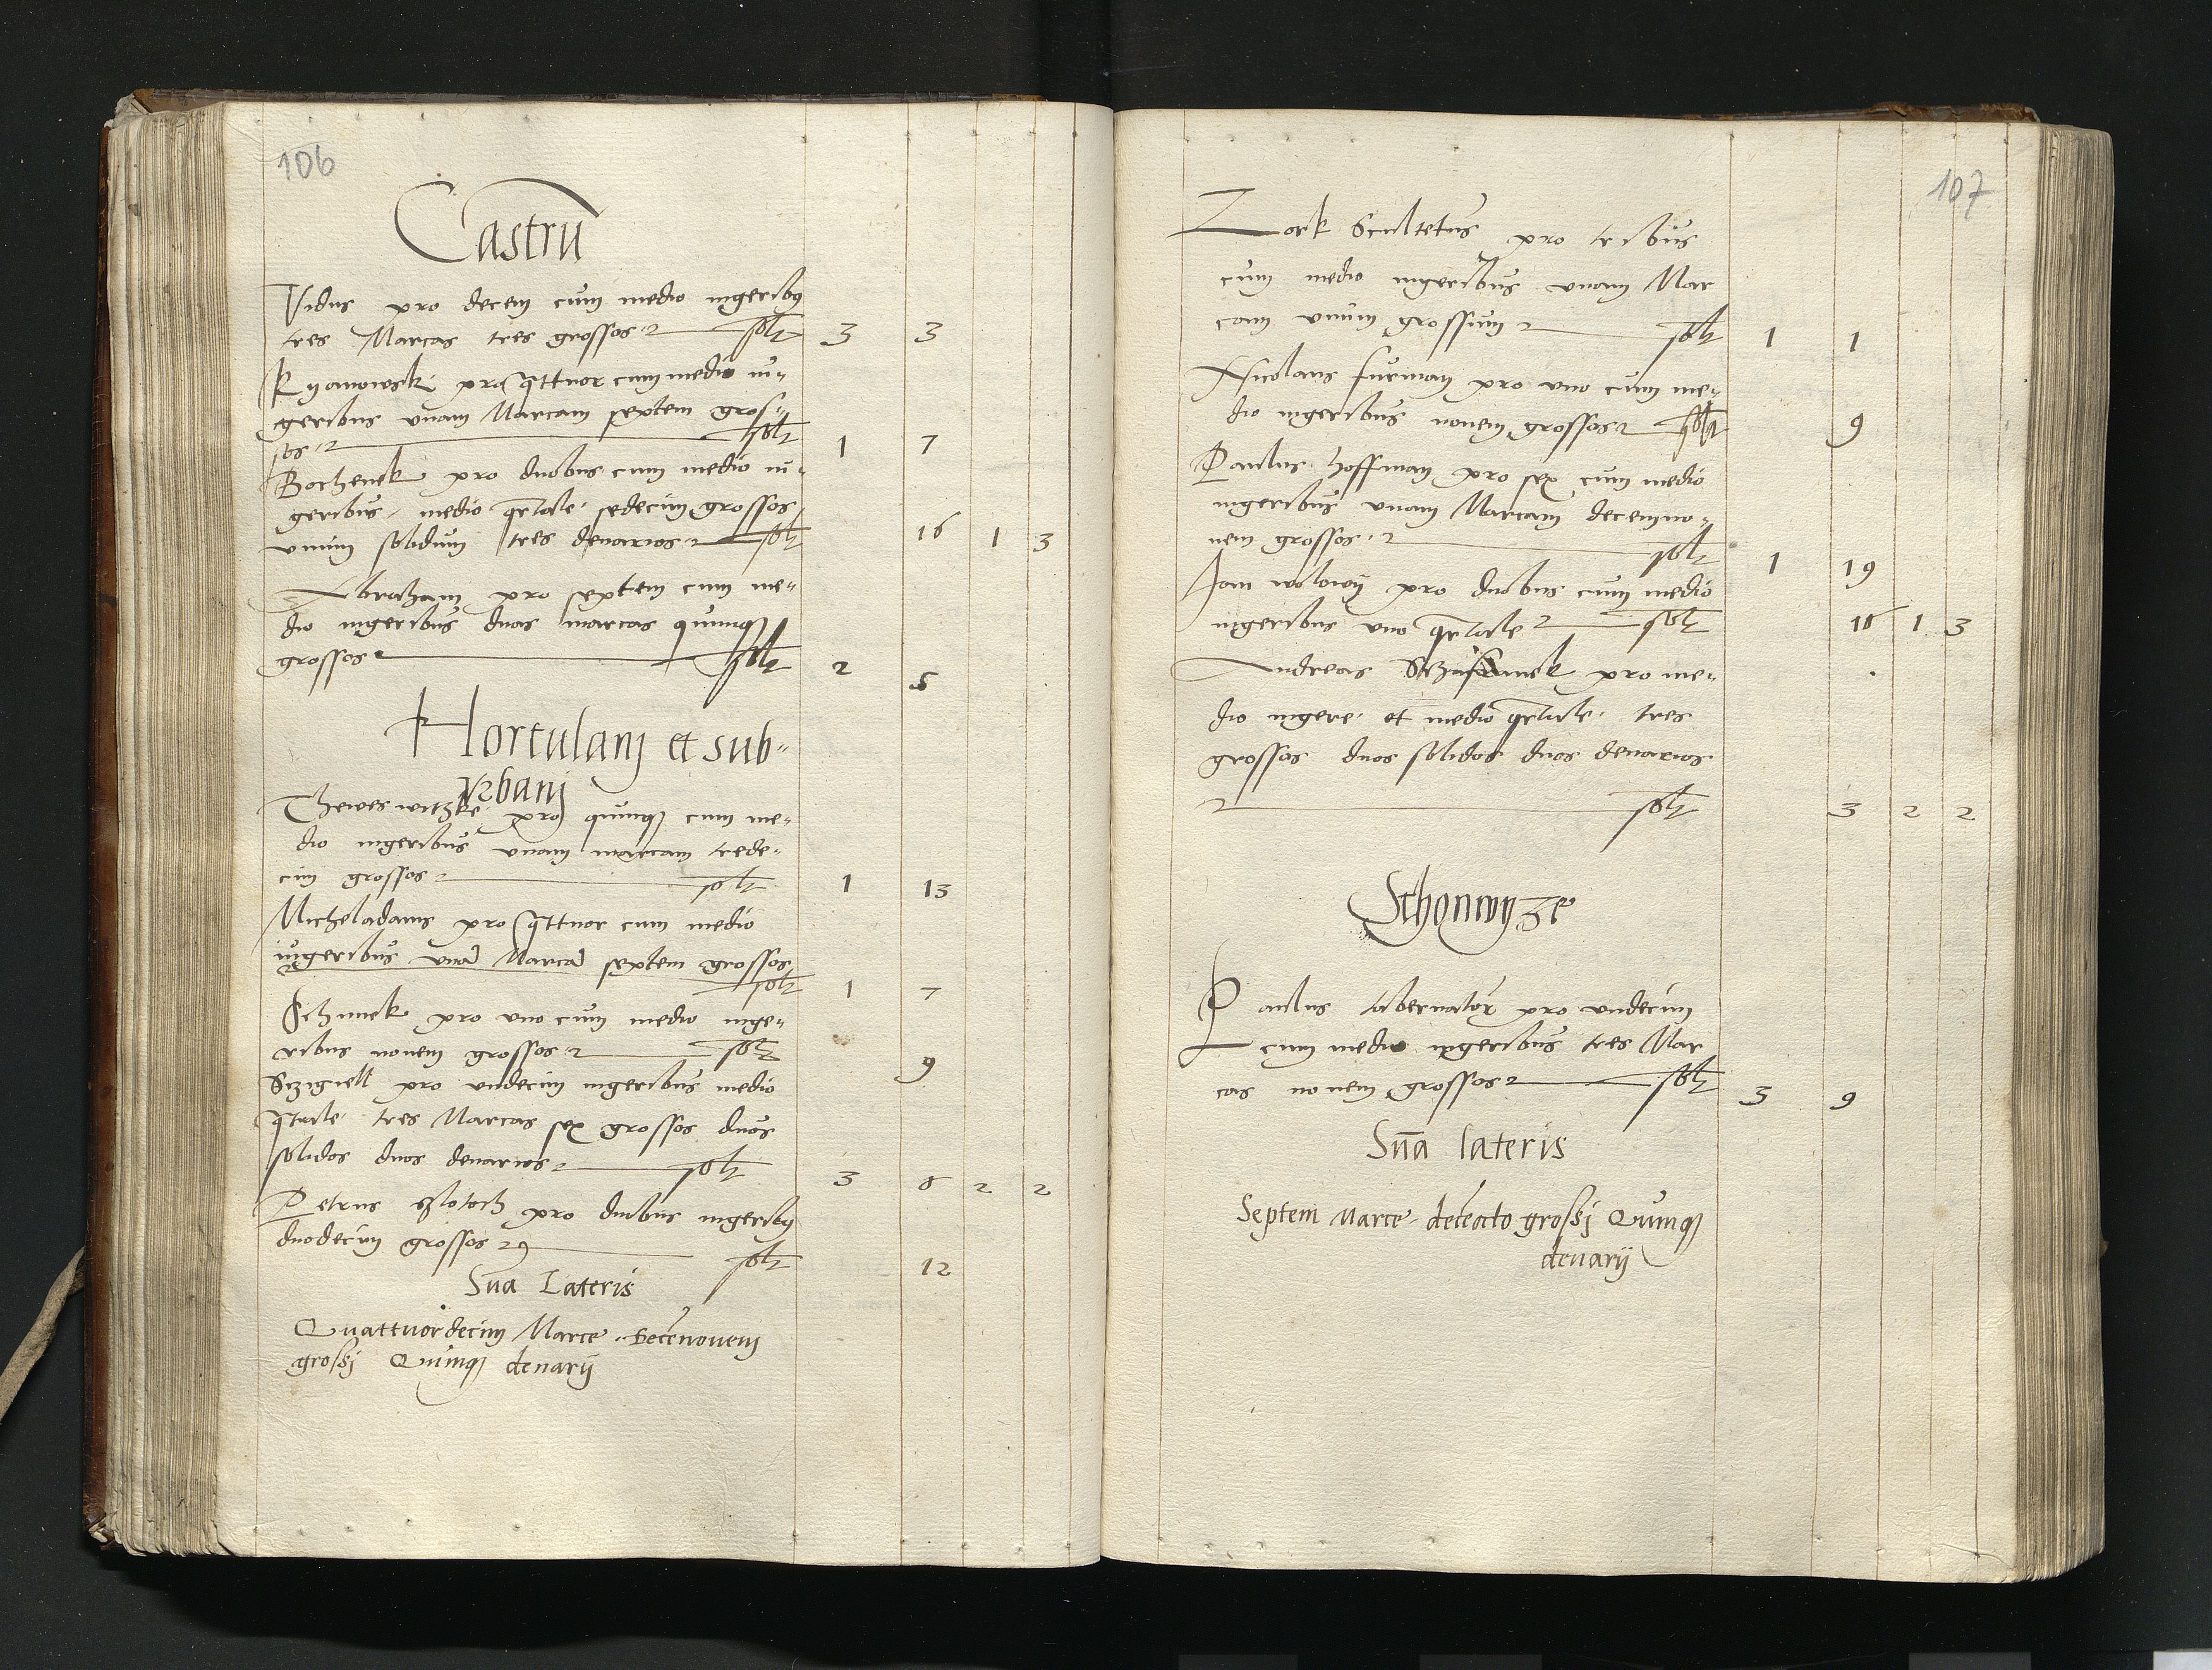 106
Castrū
Vidus pro decem cum medio iugeriby
tres Marcas tres grossos solt 3 3
Kyanowski pro qttuor cum medio iu-
geribus vnam Marcam septem gros-
sos solt 1 7
Bochenek pro duobus cum medio iu-
geribus, medio qrtale sedecim grossos
vnum solidum tres denarios solt 16 1 3
Abraham pro septem cum me-
dio iugeribus duas marcas quinqʒ
grossos solt 2 5
Hortulanj et sub-
vrbanj
Thewes witzke pro quinqʒ cum me-
dio iugeribus vnam marcam trede-
cim grossos solt 1 13
Michel adams pro qttuor cum medio
iugeribus vnā Marcā septem grossos
solt 1 7
Schimek pro vno cum medio iuge-
ribus nonem grossos solt 9
pro vndecim iugeribus medio
qrtale tres Marcas sex grossos duos
solidos duos denarios solt 3 6 2 2
Petrus pro duobus iugeriby
duodecim grossos solt 12
Sūa Lateris
Quattuordecim Marce. decēnovem
grossj Quinqʒ denarij
107
Lork Scultetus pro tribus
cum medio iugeribus vnam Mar
cam vnum grossum solt 1 1
Nicolaus furman pro vno cum me-
dio iugeribus nonem grossos solt 9
Paulus Hoffman pro sex cum medio
iugeribus vnam Marcam decemno-
nem grossos solt 1 19
Jan wolowy pro duobus cum medio
iugeribus vno qrtale solt 1 3
Andreas pro me-
dio iugere et medio qrtale tres
grossos duos solidos duos denarios
solt 3 2 2
Schonwyze
Paulus tabernator pro vndecim
cum medio iugeribus tres Mar
cas nonem grossos solt 3 9
Sūa lateris
Septem Marce decēocto grossj Quinqʒ
denarij